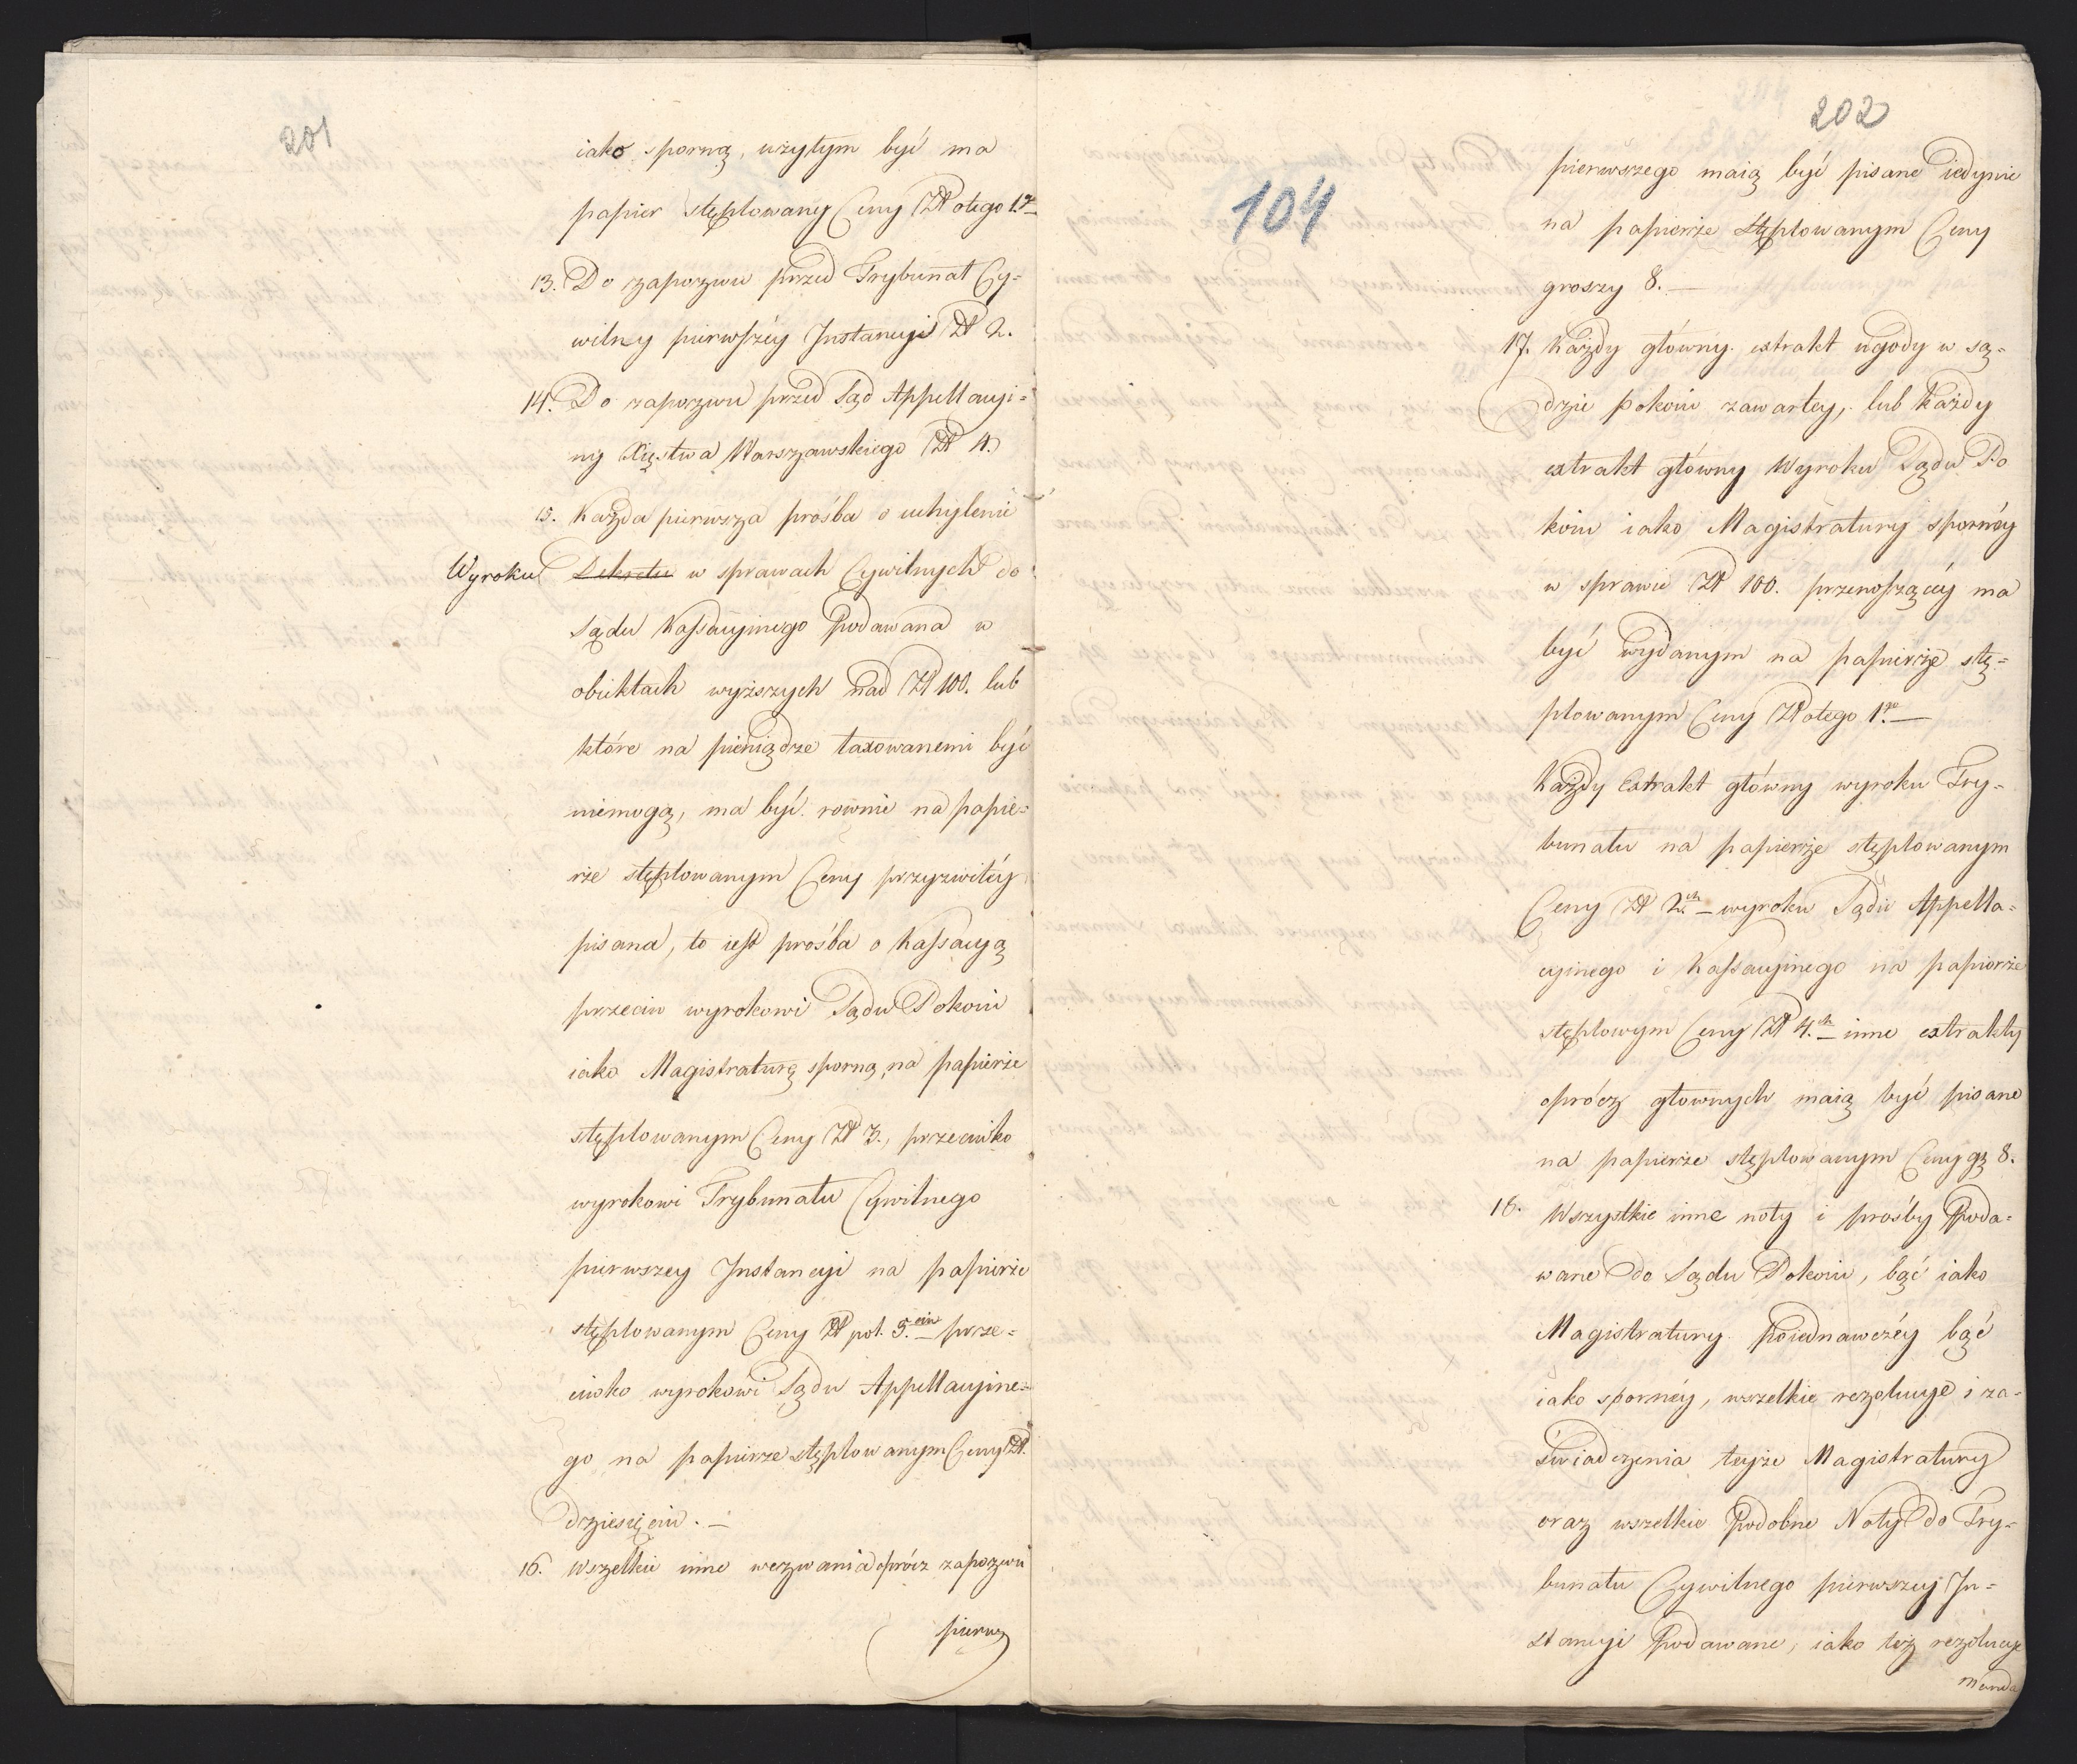 201
iako sporną, użytym być ma
papier stęplowany Ceny Złotego 1.go
13. Do zapozwu przed Trybunał Cy=
wilny pierwszéy Instancyi Zł 2.
14. Do zapozwu przed Sąd Appellacyi=
ny Xięstwa Warszawskiego Zł 4.
15. Każda pierwsza prośba o uchylenie
Wyroku Dekretu w sprawach Cywilnych do
Sądu Kassacyinego Podawana w
obiektach wyższych nad Zł 100. lub
które na pieniądze taxowanemi być
niemogą, ma być rownie na papie=
rze stęplowanym Ceny przyzwitéy
pisana, to iest prośba o Kassacyą
przeciw wyrokowi Sądu Pokoiu
iako Magistraturą sporną, na papierze
stęplowanym Ceny Zł 3., przeciwko
wyrokowi Trybunału Cywilnego
pierwszey Instancyi na papierze
stęplowanym Ceny Zł pol. 5.ciu prze=
ciwko wyrokowi Sądu Appellacyine=
go na papierze stęplowanym Ceny Zł.
dziesięciu. —
16. Wszelkie inne wezwania oprócz zapozwu
pierwsz
202
104
pierwszego maią być pisane iedynie
na papierze stęplowanym Ceny
groszy 8. —
17. Każdy główny extrakt ugody w są=
dzie pokoiu zawartey, lub Każdy
extrakt główny Wyroku Sądu Po
koiu iako Magistratury spornéy
w sprawie Zł 100. przenoszącéy ma
być wydanym na papierze stę=
plowanym Ceny Złotego 1.go —
Każdy Extrakt główny wyroku Try=
bunału na papierze stęplowanym
Ceny Zł 2.ch — wyroku Sądu Appella=
cyinego i Kassacyinego na papierze
stęplowym Ceny Zł 4.ch — inne extrakty
oprócz głownych maią być pisane
na papierze stęplowanym Ceny gr 8.
18. Wszystkie inne noty i prośby Poda=
wane do Sądu Pokoiu, bąć iako
Magistratury Poiednawczéy bąć
iako spornéy, wszelkie rezolucye i za=
świadczenia teyże Magistratury
oraz wszelkie Podobne Noty do Try=
bunału Cywilnego pierwszey In=
stancyi Podawane, iako też rezolucye
manda